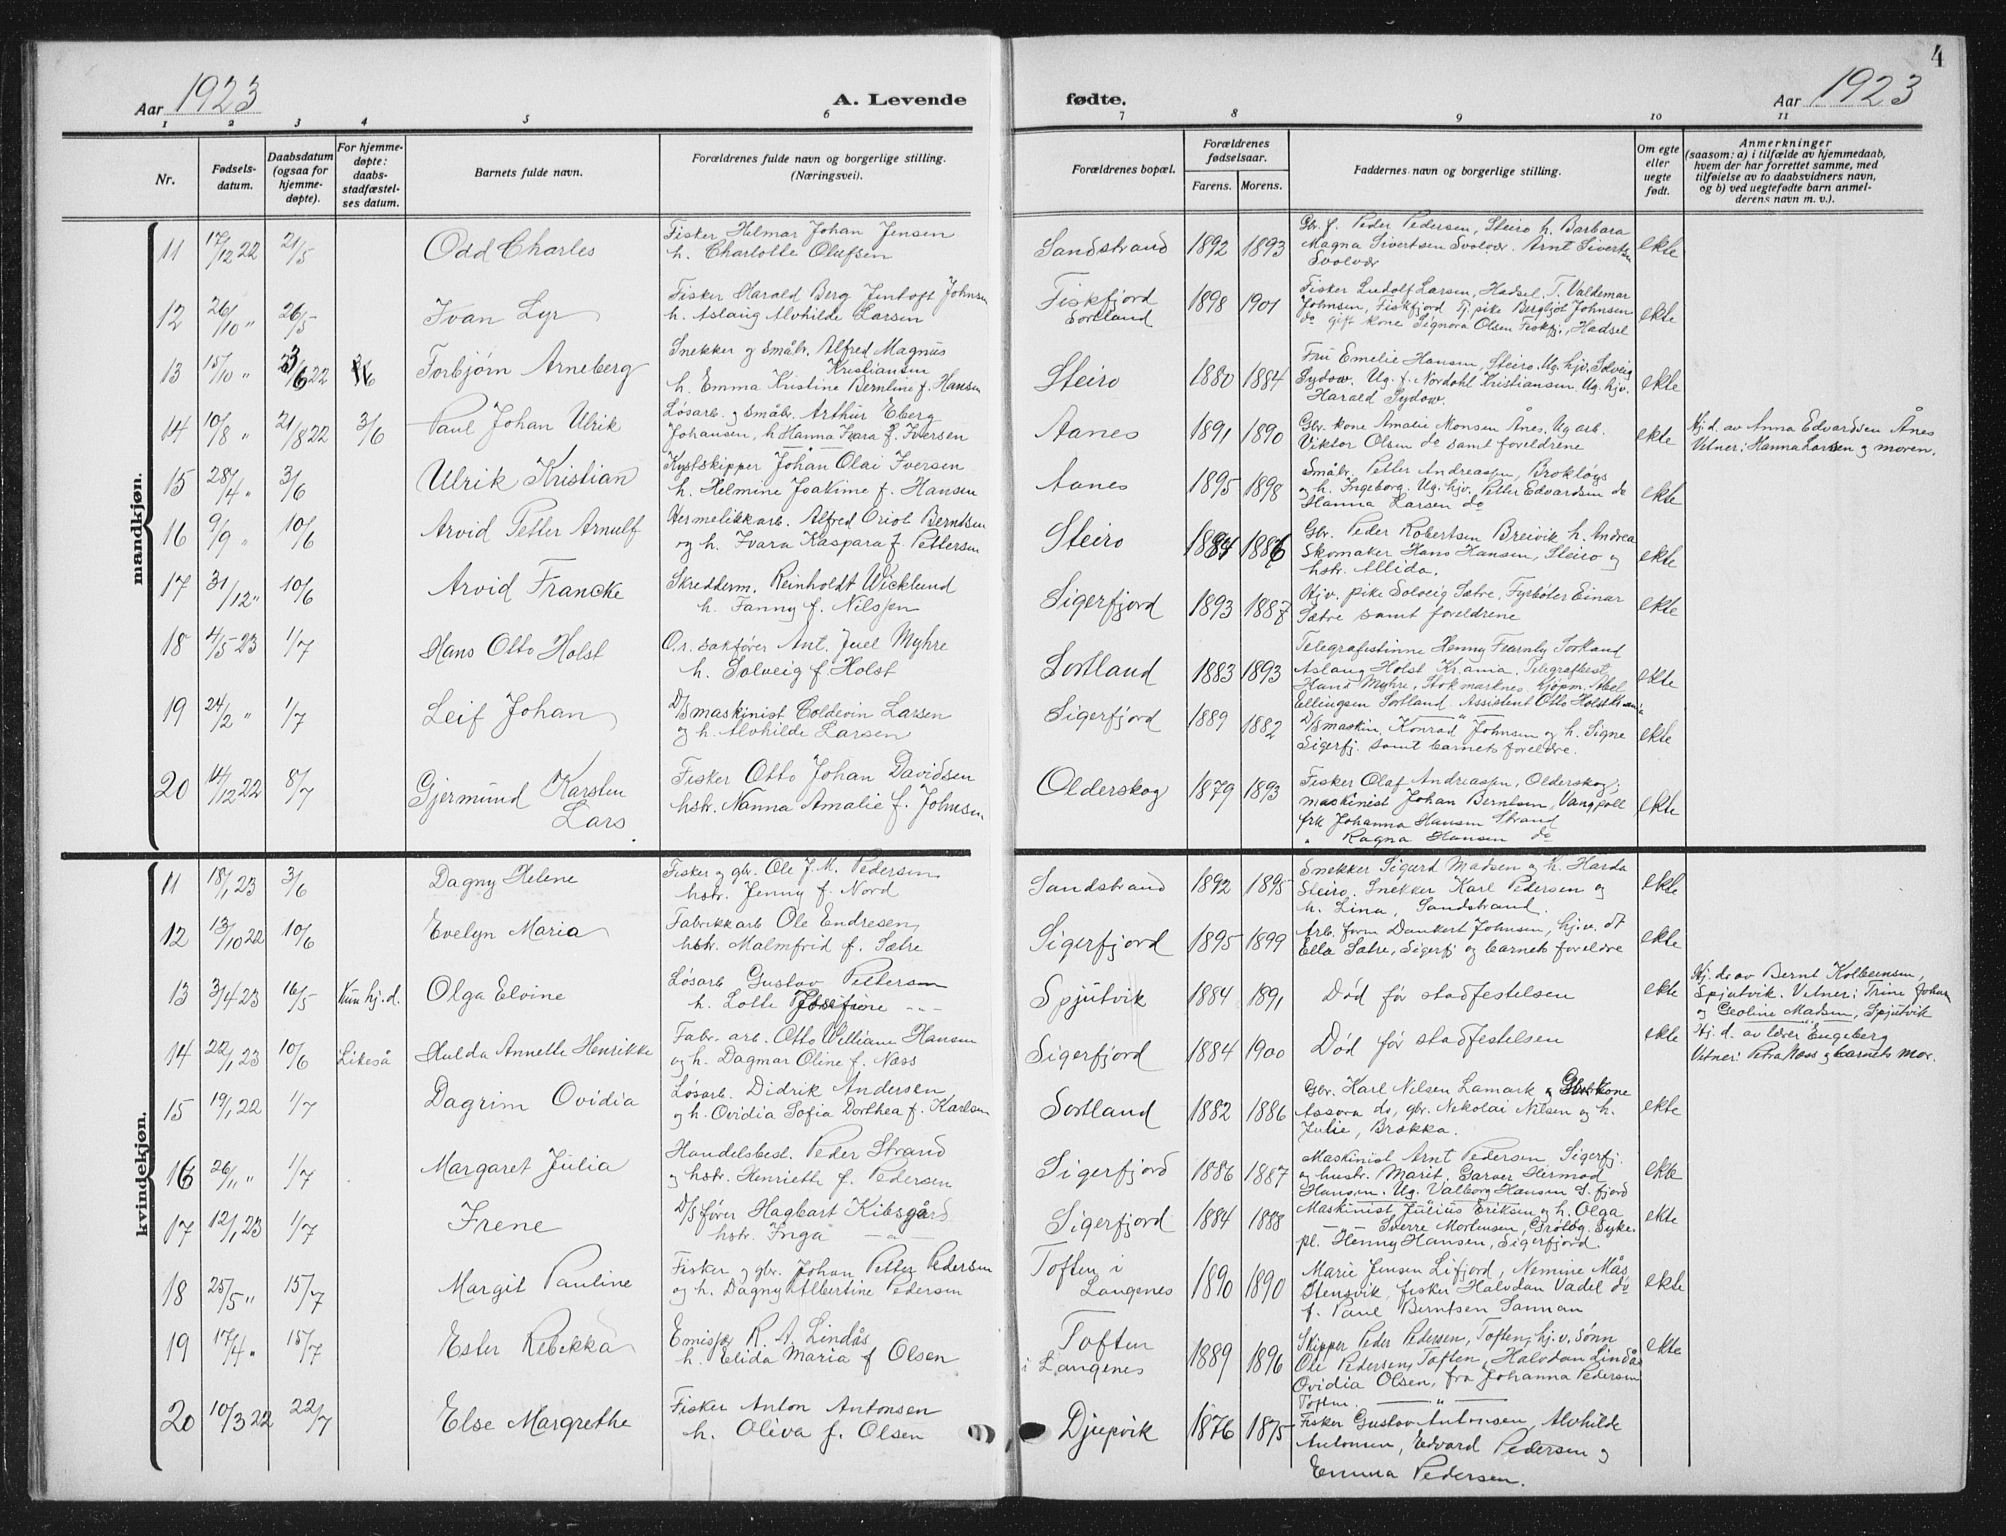 4
Aar 1923
A. Levende
fødte.
Aar 1923
1 2 3 4 5 6 7 8 9 10 11
Nr.
Fødsels-
datum.
Daabsdatum
(ogsaa for
hjemme-
døpte).
For hjemme-
døpte:
daabs-
stadfæstel-
ses datum.
Barnets fulde navn.
Forældrenes fulde navn og borgerlige stilling.
(Næringsvei).
Forældrenes bopæl.
Forældrenes
fødselsaar.
Farens. Morens.
Faddernes navn og borgerlige stilling.
Om egte
eller
uegte
født.
Anmerkninger
(saasom: a) i tilfælde av hjemmedaab,
hvem der har forrettet samme, med
tilføielse av to daabsvidners navn,
og b) ved uegtefødte barn anmel-
derens navn m. v.).
mandkjøn.
11 17/12 22 21/5 Odd Charles
Fisker Hilmar Johan Jensen
h. Charlotte Olufsen
Sandstrand 1892 1893
Gbr. f. Peder Pedersen, Steiro h. Barbara
Magna Sivertsen Svolvær. Arnt Sivertsen
Svolvær
ekte
12 26/10 " 26/5 Ivan Lyr
Fisker Harald Berg Jentoft Johnsen
h. Aslaug Alvhilde Larsen
Fiskfjord
Sortland
1898 1901
Fisker Ludolf Larsen, Hadsel, T. Valdemar
Johnsen, Fiskfjord Tj. pike Bergljot Johnsen
do gift kone Signora Olsen Fiskfj., Hadsel
ekte
13 15/10 " 22 Torbjørn Arneberg
Snekker og småbr. Alfred Magnus
Kristiansen
h. Emma Kristine Berntine f. Hansen
Steiro 1880 1884
Fru Emelie Hansen, Steiro. Ug. hjv. Solveig
Sydow. Ug. f. Nordahl Kristiansen. Ug. hjv.
Harald Sydow.
ekte
14 10/8 " 21/8 22 3/6 Paul Johan Ulrik
Løsarb. og småbr. Arthur Eberg
Johansen, h. Hanna Ivara f. Iversen
Aanes 1891 1890
Gbr. kone Amalie Monsen Ånes. Ug. arb.
Viktor Olsen do samt foreldrene
ekte
Hj.d. av Anna Edvardsen Ånes
Vitner: Hanna Larsen og moren.
15 28/4 " 3/6 Ulrik Kristian
Kystskipper Johan Olai Iversen
h. Helmine Joakime f. Hansen
Aanes 1895 1898
Småbr. Petter Andreassen, Brokløys
og h. Ingeborg. Ug. hjv. Petter Edvardsen do
Hanna Larsen do
ekte
16 9/9 " 10/6 Arvid Petter Arnulf
Hermetikkarb. Alfred Oriol Berntsen
og h. Ivara Kaspara f. Pettersen
Steiro 1884 1886
Gbr. Peder Robertsen Breivik h. Andrea
Skomaker Hans Hansen, Steiro og
hstr. Allida.
ekte
17 31/12 " 10/6 Arvid Francke
Skredderm. Reinholdt Wicklund
h. Fanny f. Nilssen
Sigerfjord 1893 1887
Hjv. pike Solveig Sætre, Fyrbøter Einar
Sætre samt foreldrene
ekte
18 4/5 23 1/7 Hans Otto Holst
O.r. sakfører Ant. Juel Myhre
h. Solveig f. Holst
Sortland 1883 1893
Telegrafistinne Henny Fearnly Sortland
Aslaug Holst Kr.ania. Telegrafbest.
Hans Myhre, Stokmarknes. Kjøpm. Abel
Ellingsen Sortland. Assistent Otto Holst Kr.ania
ekte
19 24/2 " 1/7 Leif Johan
D/S maskinist Coldevin Larsen
og h. Alvhilde Larsen
Sigerfjord 1889 1882
D/S maskin. Konrad Johnsen og h. Signe
Sigerfj. samt barnets foreldre.
ekte
20 14/12 22 8/7 Gjermund Karsten
Lars
Fisker Otto Johan Davidsen
hstr. Nanna Amalie f. Johnsen
Olderskog 1879 1893
Fisker Olaf Andreassen, Olderskog,
maskinist Johan Berntsen, Vangpoll
frk Johanna Hansen Strand
" Ragna Hansen do
ekte
kvindekjøn.
11 18/1 23 3/6 Dagny Helene
Fisker og gbr. Ole J. M. Pedersen
hstr. Jenny f. Nord
Sandstrand 1892 1895
Snekker Sigurd Madsen og h. Harda
Steiro. Snekker Karl Pedersen og
h. Lina, Sandstrand.
ekte
12 13/10 22 10/6 Evelyn Maria
Fabrikkarb Ole Endresen,
hstr. Malmfrid f. Sætre
Sigerfjord 1895 1899
Arb. form Dankert Johnsen, hj.v. dt
Ella Sætre, Sigerfj og barnets foreldre
ekte
13 3/4 23 16/5 Kun hj.d. Olga Elvine
Løsarb Gustav Pettersen
h. Lotte Josefine - " -
Spjutvik 1884 1891
Død før stadfestelsen
ekte
Hj. d. av Bernt Kolbeinsen,
Spjutvik. Vitner: Trine Johan
og Geoline Madsen, Spjutvik
14 22/1 23 10/6 Likeså Hulda Annette Henrikke
Fabr. arb. Otto William Hansen
og h. Dagmar Oline f. Næss
Sigerfjord 1884 1900
Død før stadfestelsen
ekte
Hj. d. av lærer Engeberg
Vitner: Petra Næss og barnets mor.
15 19/1 22 1/7 Dagrim Ovidia
Løsarb. Didrik Andersen
og h. Ovidia Sofia Dorthea f. Karlsen
Sortland 1882 1886
Gbr. Karl Nilsen Lamark kone
Assora do, gbr. Nikolai Nilsen og h.
Julie, Brokka.
ekte
16 26/11 " 1/7 Margaret Julia
Handelsbest. Peder Strand
og hstr. Henriette f. Pedersen
Sigerfjord 1886 1887
Maskinist Arnt Pedersen Sigerfj.
og hustr. Marit. Garver Hermod
Hansen. Ug. Valborg Hansen S. fjord
ekte
17 12/1 23 1/7 Irene
D/S fører Hagbart Kibsgård
hstr. Inga - " -
Sigerfjord 1884 1888
Maskinist Julius Eriksen og h. Olga
- " - Sverre Mortensen, Grøløg. Syke-
pl. Henny Hansen, Sigerfjord.
ekte
18 25/5 " 15/7 Margit Pauline
Fisker og gbr. Johan Petter Pedersen
og h. Dagny Albertine Pedersen
Toften i
Langenes
1890 1890
Marie Jensen Lifjord, Nemine Mås
Stensvik, fisker Halvdan Vadel do
f. Paul Berntsen Sannan
ekte
19 17/4 " 15/7 Ester Rebekka
Emisær R. A. Lindås
h. Elida Maria f Olsen
Toften
i Langenes
1889 1896
Skipper Peder Pedersen, Toften, hj.v. Sønn
Ole Pedersen, Toften, Halvdan Lindås
Ovidia Olsen, fra Johanna Pedersen
Toften. - " -
ekte
20 10/3 22 22/7 Else Margrethe
Fisker Anton Antonsen
h. Oliva f. Olsen
Djupvik 1876 1875
Fisker Gustav Antonsen, Alvhilde
Antonsen, Edvard Pedersen og
Emma Pedersen.